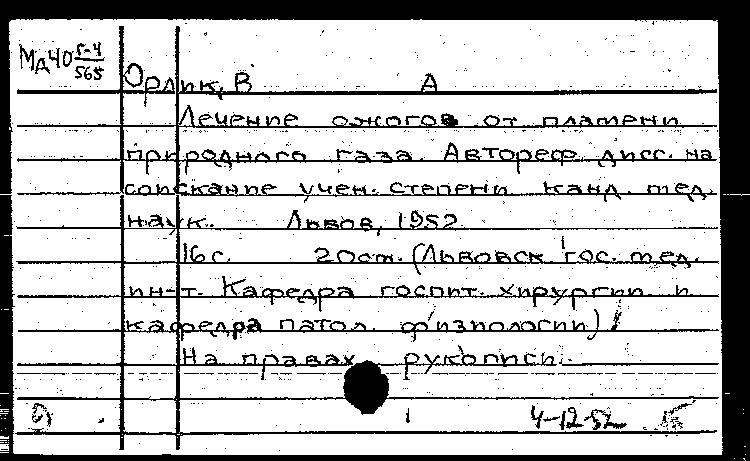 МД40 Г-4
565
Орлик, В А
Лечение ожогов от пламени
природного газа. Автореф. дисс. на
соискание учен. степени канд. мед.
наук. Львов, 1952
16 с. 20 см. (Львовск. гос. мед.
ин-т. Кафедра госпит. хирургии и
кафедра патол. физиологии)
На правах рукописи.
4-12-52